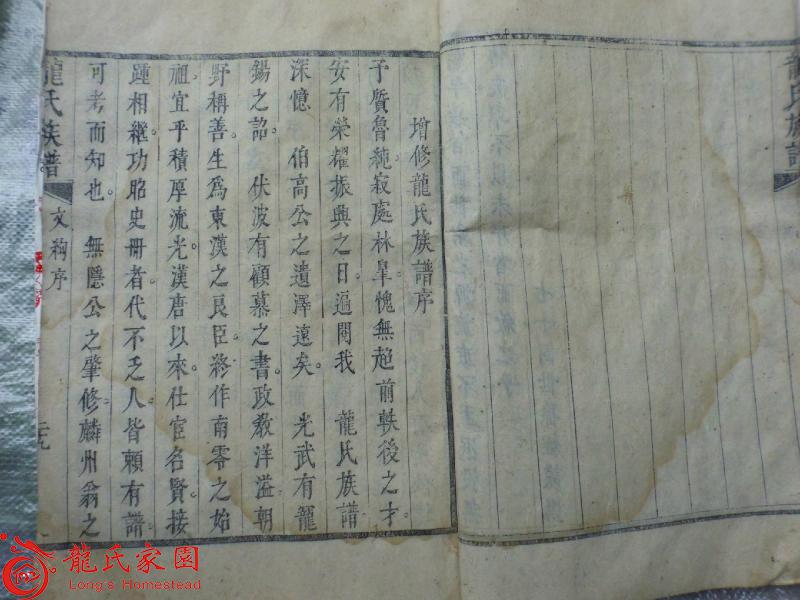 增修龍氏族譜序
予質魯純寂處林臯愧無超前軼後之才。
安有榮耀振興之日遍閱我 龍氏族譜
深憶 伯高公之遺澤遠矣。 光武有龍
錫之詔。 伏波有顧慕之書。政教洋溢朝
野稱善。生為東漢之良臣。終作南零之始
祖宜乎積厚流光。漢唐以來仕宦名賢。接
踵相繼功昭史冊者。代不乏人皆賴有譜。
可考而知也。 無隱公之肇修。麟州翁之
龍氏族譜
文構序
二九
龍氏族譜
龍氏家園
Long's Homestead